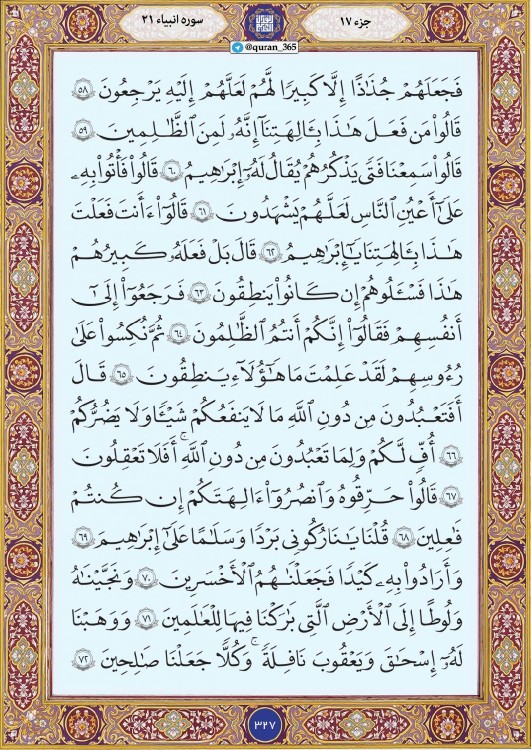 جزء ۱۷
سوره انبیاء ۲۱
@quran_365
فَجَعَلَهُمْ جُذَٰذًا إِلَّا كَبِيرًا لَّهُمْ لَعَلَّهُمْ إِلَيْهِ يَرْجِعُونَ ۵۸
قَالُوا۟ مَن فَعَلَ هَٰذَا بِـَٔالِهَتِنَآ إِنَّهُۥ لَمِنَ ٱلظَّٰلِمِينَ ۵۹
قَالُوا۟ سَمِعْنَا فَتًى يَذْكُرُهُمْ يُقَالُ لَهُۥٓ إِبْرَٰهِيمُ ۶۰ قَالُوا۟ فَأْتُوا۟ بِهِۦ
عَلَىٰٓ أَعْيُنِ ٱلنَّاسِ لَعَلَّهُمْ يَشْهَدُونَ ۶۱ قَالُوٓا۟ ءَأَنتَ فَعَلْتَ
هَٰذَا بِـَٔالِهَتِنَا يَٰٓإِبْرَٰهِيمُ ۶۲ قَالَ بَلْ فَعَلَهُۥ كَبِيرُهُمْ
هَٰذَا فَسْـَٔلُوهُمْ إِن كَانُوا۟ يَنطِقُونَ ۶۳ فَرَجَعُوٓا۟ إِلَىٰٓ
أَنفُسِهِمْ فَقَالُوٓا۟ إِنَّكُمْ أَنتُمُ ٱلظَّٰلِمُونَ ۶۴ ثُمَّ نُكِسُوا۟ عَلَىٰ
رُءُوسِهِمْ لَقَدْ عَلِمْتَ مَا هَٰٓؤُلَآءِ يَنطِقُونَ ۶۵ قَالَ
أَفَتَعْبُدُونَ مِن دُونِ ٱللَّهِ مَا لَا يَنفَعُكُمْ شَيْـًٔا وَلَا يَضُرُّكُمْ
۶۶ أُفٍّ لَّكُمْ وَلِمَا تَعْبُدُونَ مِن دُونِ ٱللَّهِ ۚ أَفَلَا تَعْقِلُونَ
۶۷ قَالُوا۟ حَرِّقُوهُ وَٱنصُرُوٓا۟ ءَالِهَتَكُمْ إِن كُنتُمْ
فَٰعِلِينَ ۶۸ قُلْنَا يَٰنَارُ كُونِى بَرْدًا وَسَلَٰمًا عَلَىٰٓ إِبْرَٰهِيمَ ۶۹
وَأَرَادُوا۟ بِهِۦ كَيْدًا فَجَعَلْنَٰهُمُ ٱلْأَخْسَرِينَ ۷۰ وَنَجَّيْنَٰهُ
وَلُوطًا إِلَى ٱلْأَرْضِ ٱلَّتِى بَٰرَكْنَا فِيهَا لِلْعَٰلَمِينَ ۷۱ وَوَهَبْنَا
لَهُۥٓ إِسْحَٰقَ وَيَعْقُوبَ نَافِلَةً ۖ وَكُلًّا جَعَلْنَا صَٰلِحِينَ ۷۲
۳۲۷